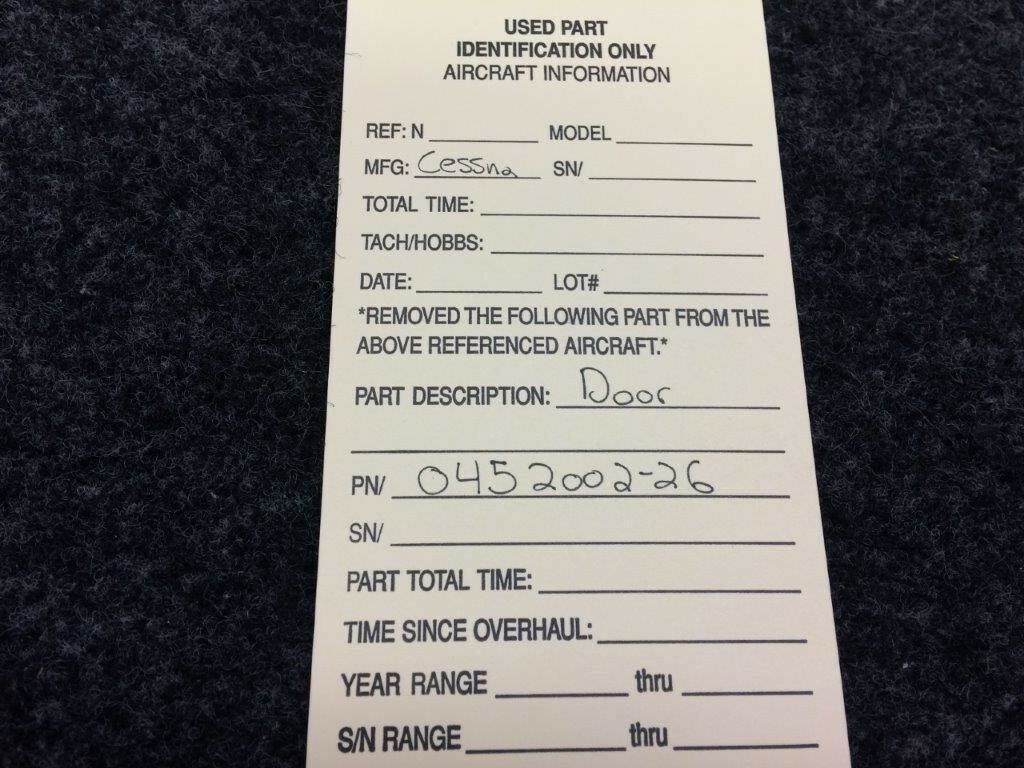 USED PART
IDENTIFICATION ONLY
AIRCRAFT INFORMATION
REF: N MODEL
MFG: Cessna SN/
TOTAL TIME:
TACH/HOBBS:
DATE: LOT#
*REMOVED THE FOLLOWING PART FROM THE
ABOVE REFERENCED AIRCRAFT.*
PART DESCRIPTION: Door
PN/ 0452002-26
SN/
PART TOTAL TIME:
TIME SINCE OVERHAUL:
YEAR RANGE thru
S/N RANGE thru